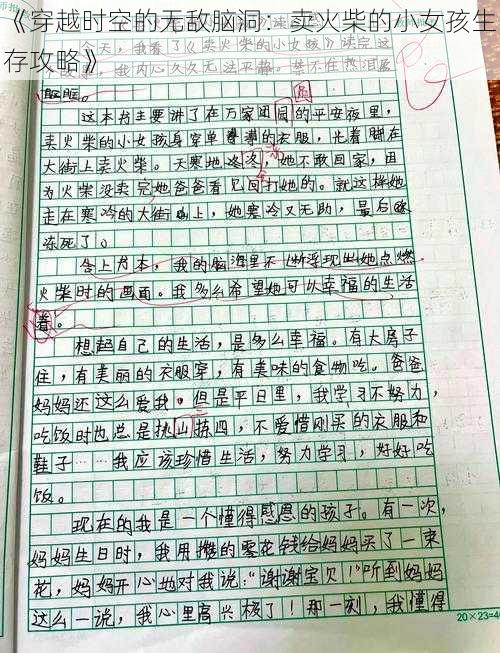 《穿越时空的无敌脑洞：卖火柴的小女孩生
存攻略》
今天，我看了《卖火柴的小女孩》读完这
我内心久久无法平静。禁不住热泪盈
眶眶。
圆
这本书主要讲了在万家团圆的平安夜里，
卖火柴的小女孩身穿单薄的衣服，光着脚在
大街上卖火柴。天寒地冻，她不敢回家，因
为火柴没卖完她爸爸看见回打她的。就这样她
走在寒冷的大街上，她寒冷又无助，最后
冻死了。
合上书本，我的脑海里不断浮现出她点燃
火柴时的画面。我多么希望她可以幸福的生活
着。
想起自己的生活，是多么幸福。有大房子
住，有美丽的衣服穿，有美味的食物吃。爸爸
妈妈还这么爱我。但是平日里，我学习不努力，
吃饭时也总是挑山拣四，不爱惜刚买的衣服和
鞋子……我应该珍惜生活，努力学习，好好吃
饭。
现在的我是一个懂得感恩的孩子。有一次，
妈妈生日时，我用攒的零花钱给妈妈买了一束
花，妈妈开心地对我说：“谢谢宝贝！”听到妈妈
这么一说，我心里高兴极了！那一刻，我懂得
20×23=4